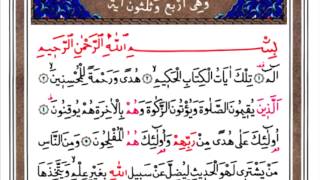 وَهِىَ اَرْبَعٌ وَثَلٰثُونَ اٰيَةً
بِسْمِ اللّٰهِ الرَّحْمٰنِ الرَّحٖيمِ
الٓمٓ ۝١ تِلْكَ اٰيَاتُ الْكِتَابِ الْحَكٖيمِ ۝٢ هُدًى وَرَحْمَةً لِلْمُحْسِنٖينَ ۝٣
اَلَّذٖينَ يُقٖيمُونَ الصَّلٰوةَ وَيُؤْتُونَ الزَّكٰوةَ وَهُمْ بِالْاٰخِرَةِ هُمْ يُوقِنُونَ ۝٤
اُولٰٓئِكَ عَلٰى هُدًى مِنْ رَبِّهِمْ وَاُولٰٓئِكَ هُمُ الْمُفْلِحُونَ ۝٥ وَمِنَ النَّاسِ
مَنْ يَشْتَرٖى لَهْوَ الْحَدٖيثِ لِيُضِلَّ عَنْ سَبٖيلِ اللّٰهِ بِغَيْرِ عِلْمٍ وَيَتَّخِذَهَا